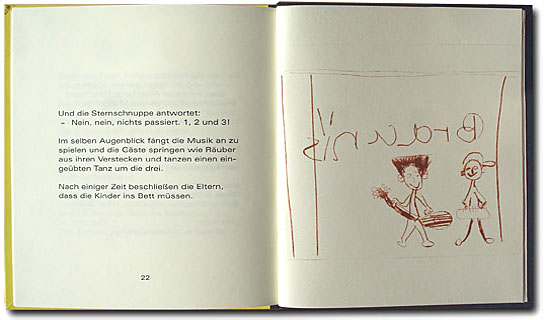 Und die Sternschnuppe antwortet:
– Nein, nein, nichts passiert. 1, 2 und 3!
Im selben Augenblick fängt die Musik an zu
spielen und die Gäste springen wie Räuber
aus ihren Verstecken und tanzen einen ein-
geübten Tanz um die drei.
Nach einiger Zeit beschließen die Eltern,
dass die Kinder ins Bett müssen.
22